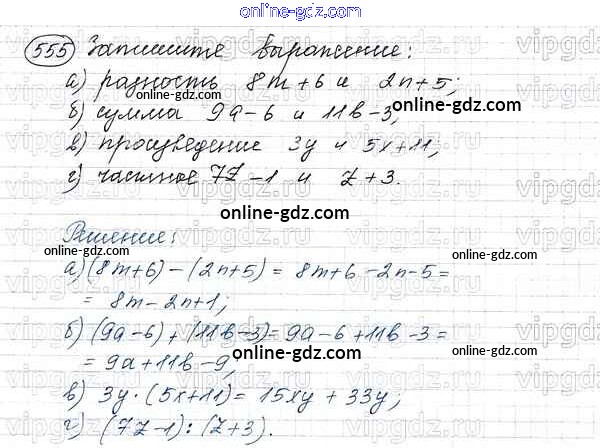 online-gdz.com
555 Запишите выражение:
а) разность 8m+6 и 2n+5;
online-gdz.com
б) сумма 9a-6 и 11b-3,
online-gdz.com
в) произведение 3y и 5x+11,
online-gdz.com
г) частное 7z-1 и z+3.
online-gdz.com
Решение:
online-gdz.com
а) (8m+6) - (2n+5) = 8m+6-2n-5=
= 8m-2n+1;
online-gdz.com
б) (9a-6) + (11b-3) = 9a-6+11b-3=
= 9a+11b-9,
online-gdz.com
в) 3y·(5x+11) = 15xy+33y;
online-gdz.com
г) (7z-1):(z+3).
online-gdz.com
vipgdz.ru